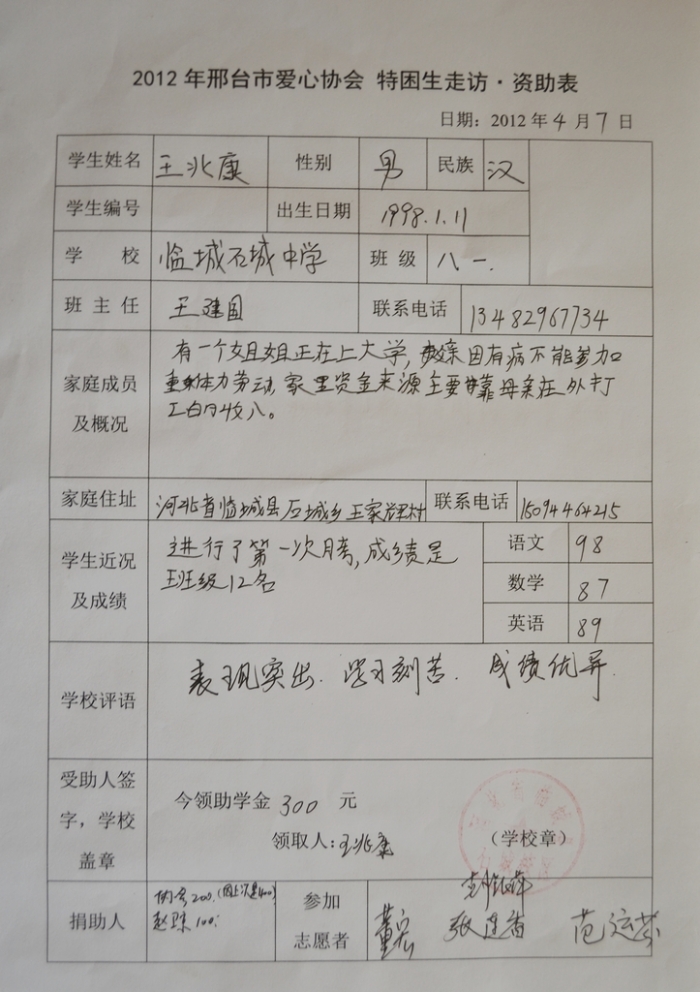 2012年邢台市爱心协会 特困生走访·资助表
日期：2012年4月7日
学生姓名 王兆康 性别 男 民族 汉
学生编号 出生日期 1998.1.11
学 校 临城石城中学 班级 八一.
班主任 王建国 联系电话 13482967734
有一个姐姐正在上大学，父亲因有病不能参加
家庭成员 重体力劳动，家里资金来源主要靠母亲在外打
及概况 工的收入。
家庭住址 河北省临城县石城乡王家 村 联系电话 15094464215
学生近况 进行了第一次月考，成绩是 语文 98
及成绩 班级12名 数学 87
英语 89
学校评语 表现突出. 学习刻苦. 成绩优异.
受助人签 今领助学金 300 元
字，学校 领取人：王兆康 （学校章）
盖章
捐助人 200. 参加
赵 100. 志愿者 董宏 范运芬